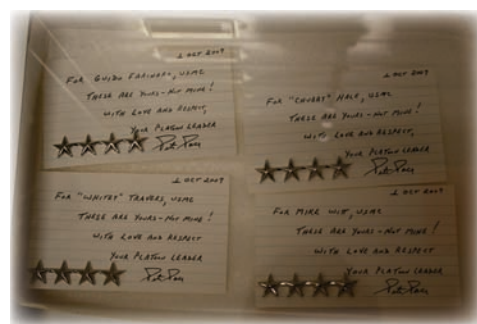 1 OCT 2007
FOR GUIDO FARINARO, USMC
THESE ARE YOURS - NOT MINE!
WITH LOVE AND RESPECT,
YOUR PLATOON LEADER
Pete Pace
1 OCT 2007
FOR "CHUBBY" HALE, USMC
THESE ARE YOURS - NOT MINE!
WITH LOVE AND RESPECT,
YOUR PLATOON LEADER
Pete Pace
1 OCT 2007
FOR "WHITEY" TRAVERS, USMC
THESE ARE YOURS - NOT MINE!
WITH LOVE AND RESPECT
YOUR PLATOON LEADER
Pete Pace
1 OCT 2007
FOR MIKE WITT, USMC
THESE ARE YOURS - NOT MINE!
WITH LOVE AND RESPECT,
YOUR PLATOON LEADER
Pete Pace